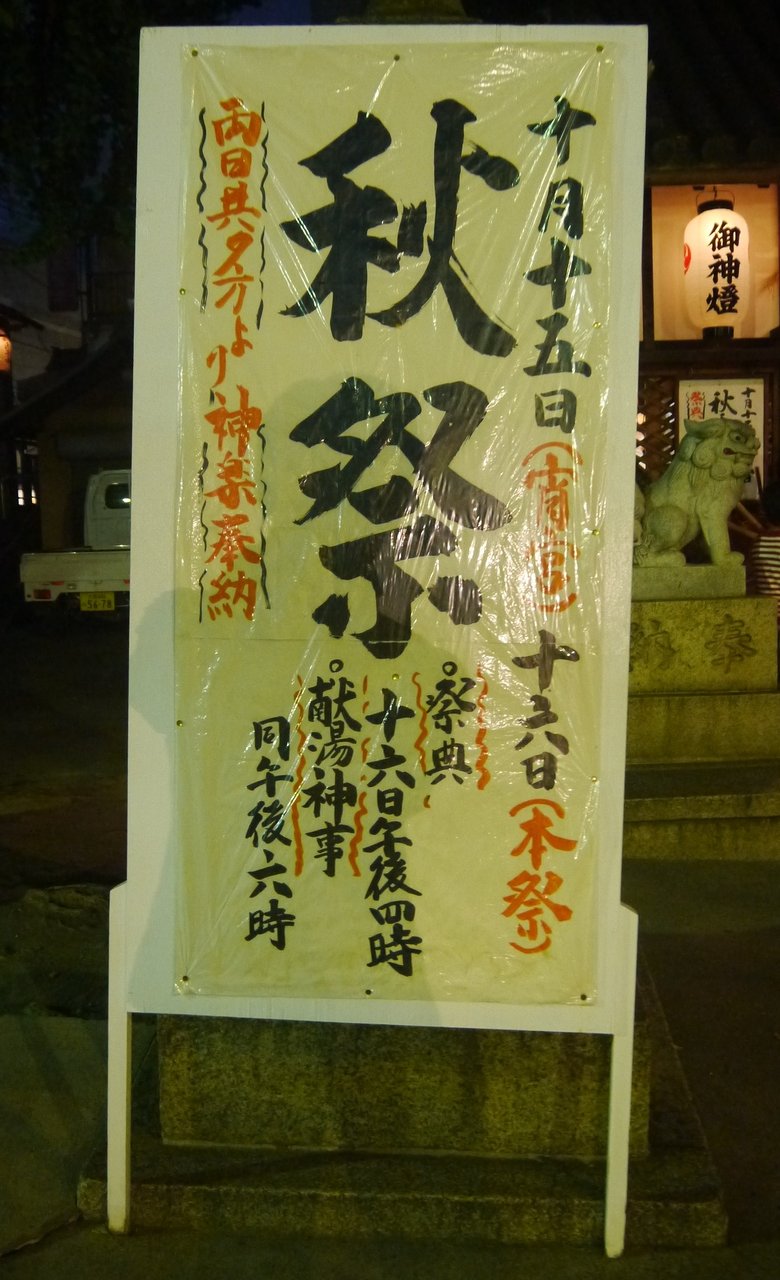 十月十五日(宵宮)十六日(本祭)
秋祭
祭典
十六日午後四時
献湯神事
同午後六時
両日共夕方より神楽奉納
御神燈
十月十五
秋
祭典
奉納
56-78